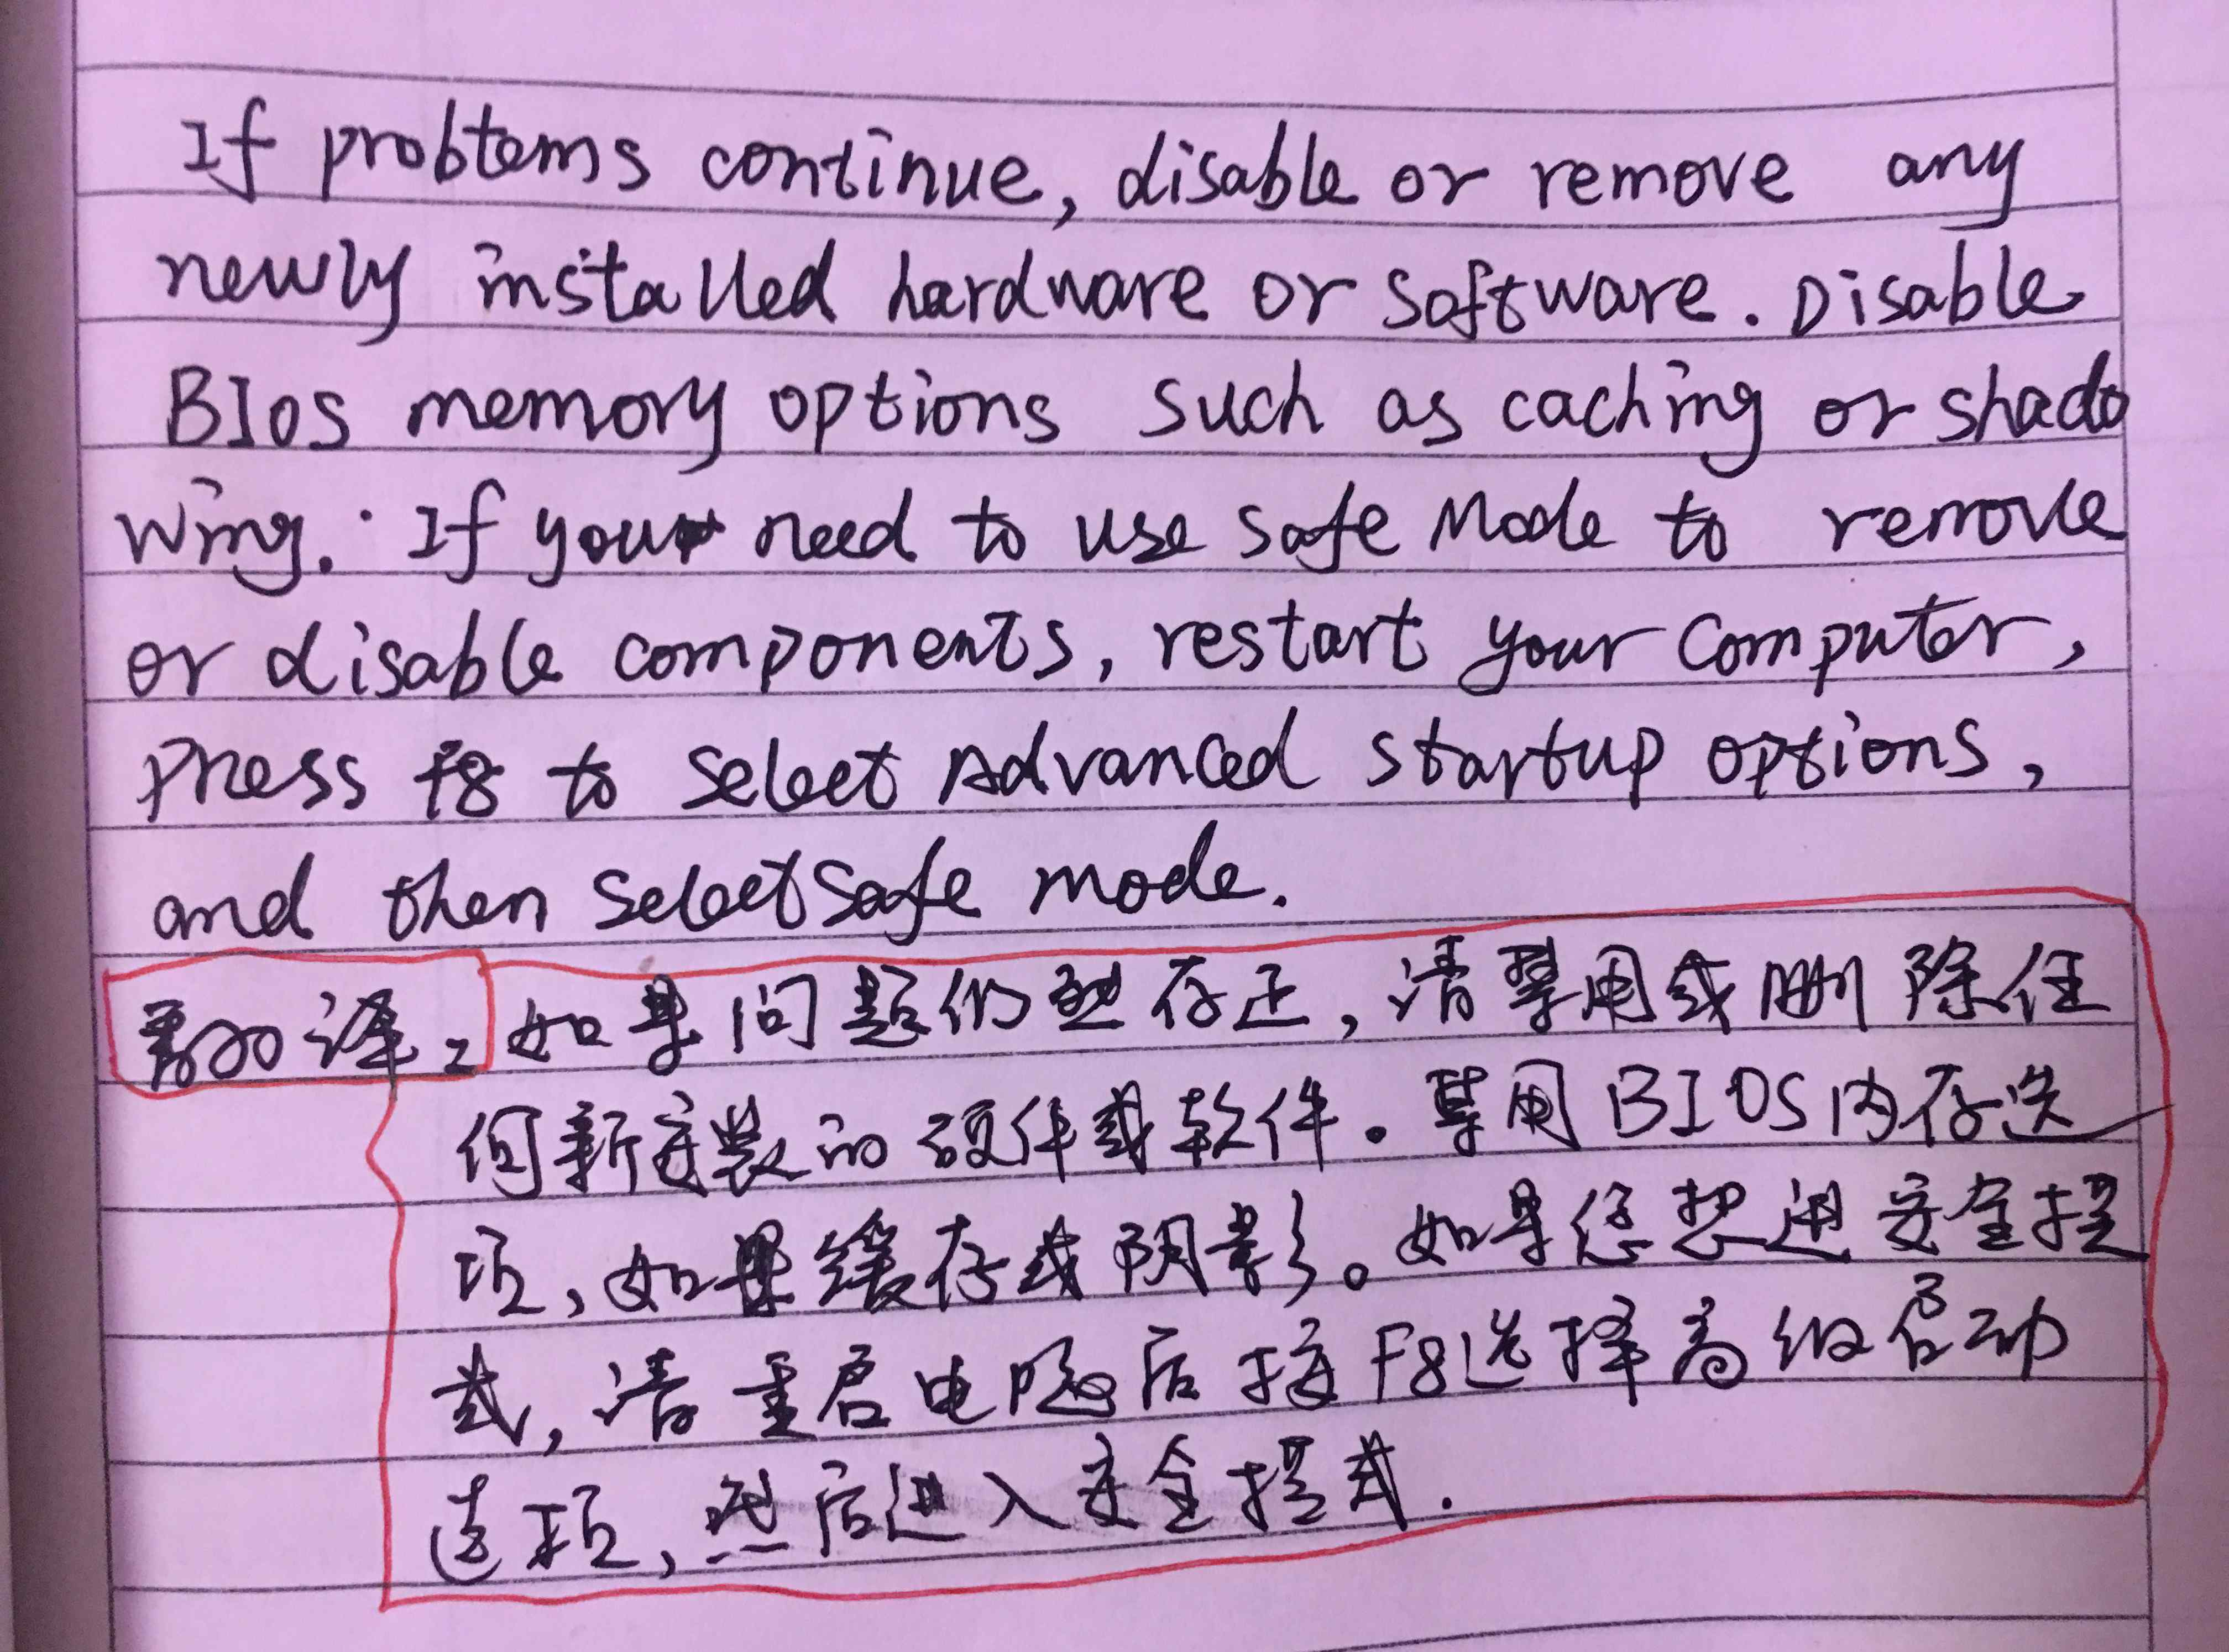 If problems continue, disable or remove any
newly installed hardware or software. Disable
BIos memory options such as caching or shado
wing. If you need to use safe Mode to remove
or disable components, restart your computer,
press f8 to select Advanced startup options,
and then select safe mode.
翻译: 如果问题仍然存在,请禁用或删除任
何新安装的硬件或软件。禁用BIOS内存选
项,如果缓存或阴影。如果您想进安全模
式,请重启电脑后按F8选择高级启动
选项,然后进入安全模式.